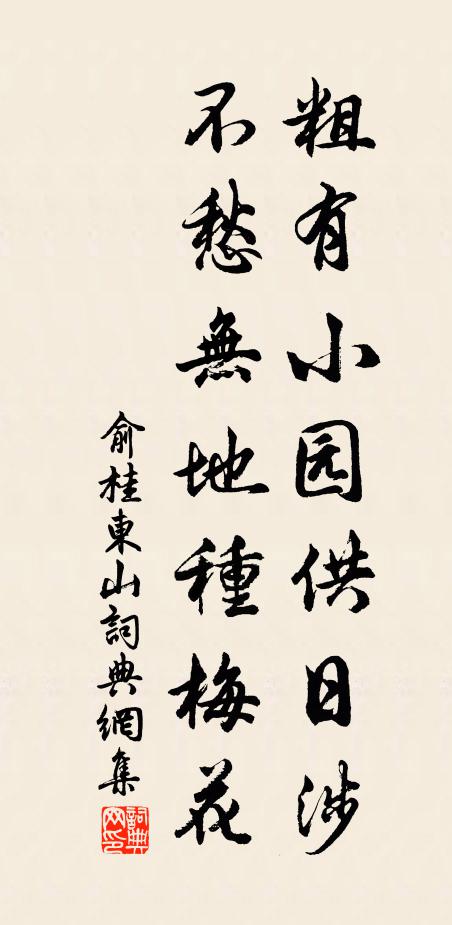 粗有小园供日涉
不愁無地種梅花
俞桂東山詞典網集
詞典網印